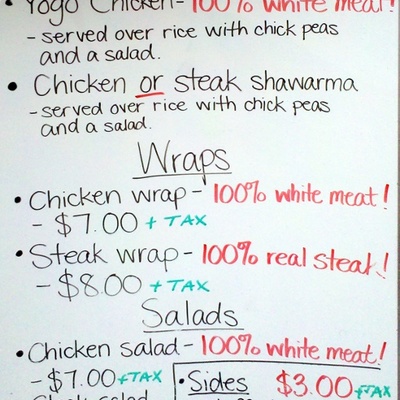 • Yogo Chicken - 100% white meat!
- served over rice with chick peas
and a salad.
• Chicken or steak shawarma
- served over rice with chick peas
and a salad.
Wraps
• Chicken wrap - 100% white meat!
- $7.00 + TAX
• Steak wrap - 100% real steak!
- $8.00 + TAX
Salads
• Chicken salad - 100% white meat!
- $7.00 + TAX
• Sides $3.00 + TAX
salad